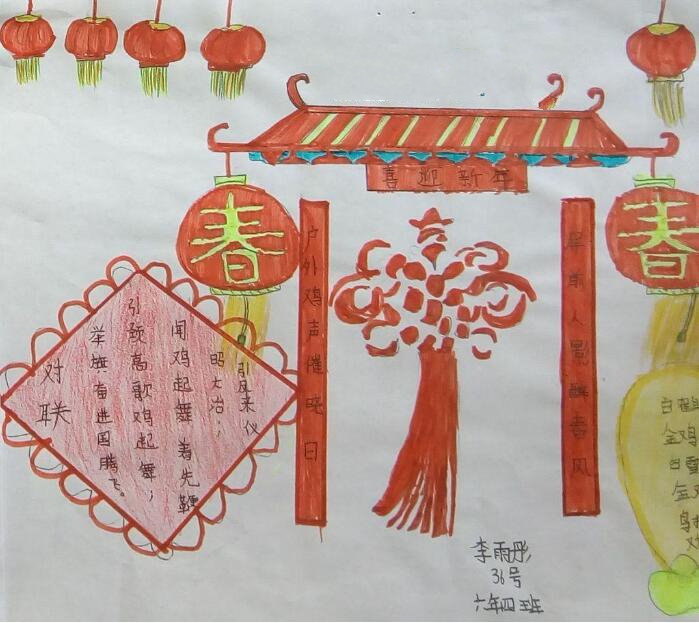 喜迎新年
春
春
户外鸡声催晓日
前人影醉春风
对联
引凤来仪
昭大治；
闻鸡起舞着先鞭
引颈高歌鸡起舞；
举旗奋进国腾飞。
金鸡
白雪
金
李雨彤
36号
六年四班